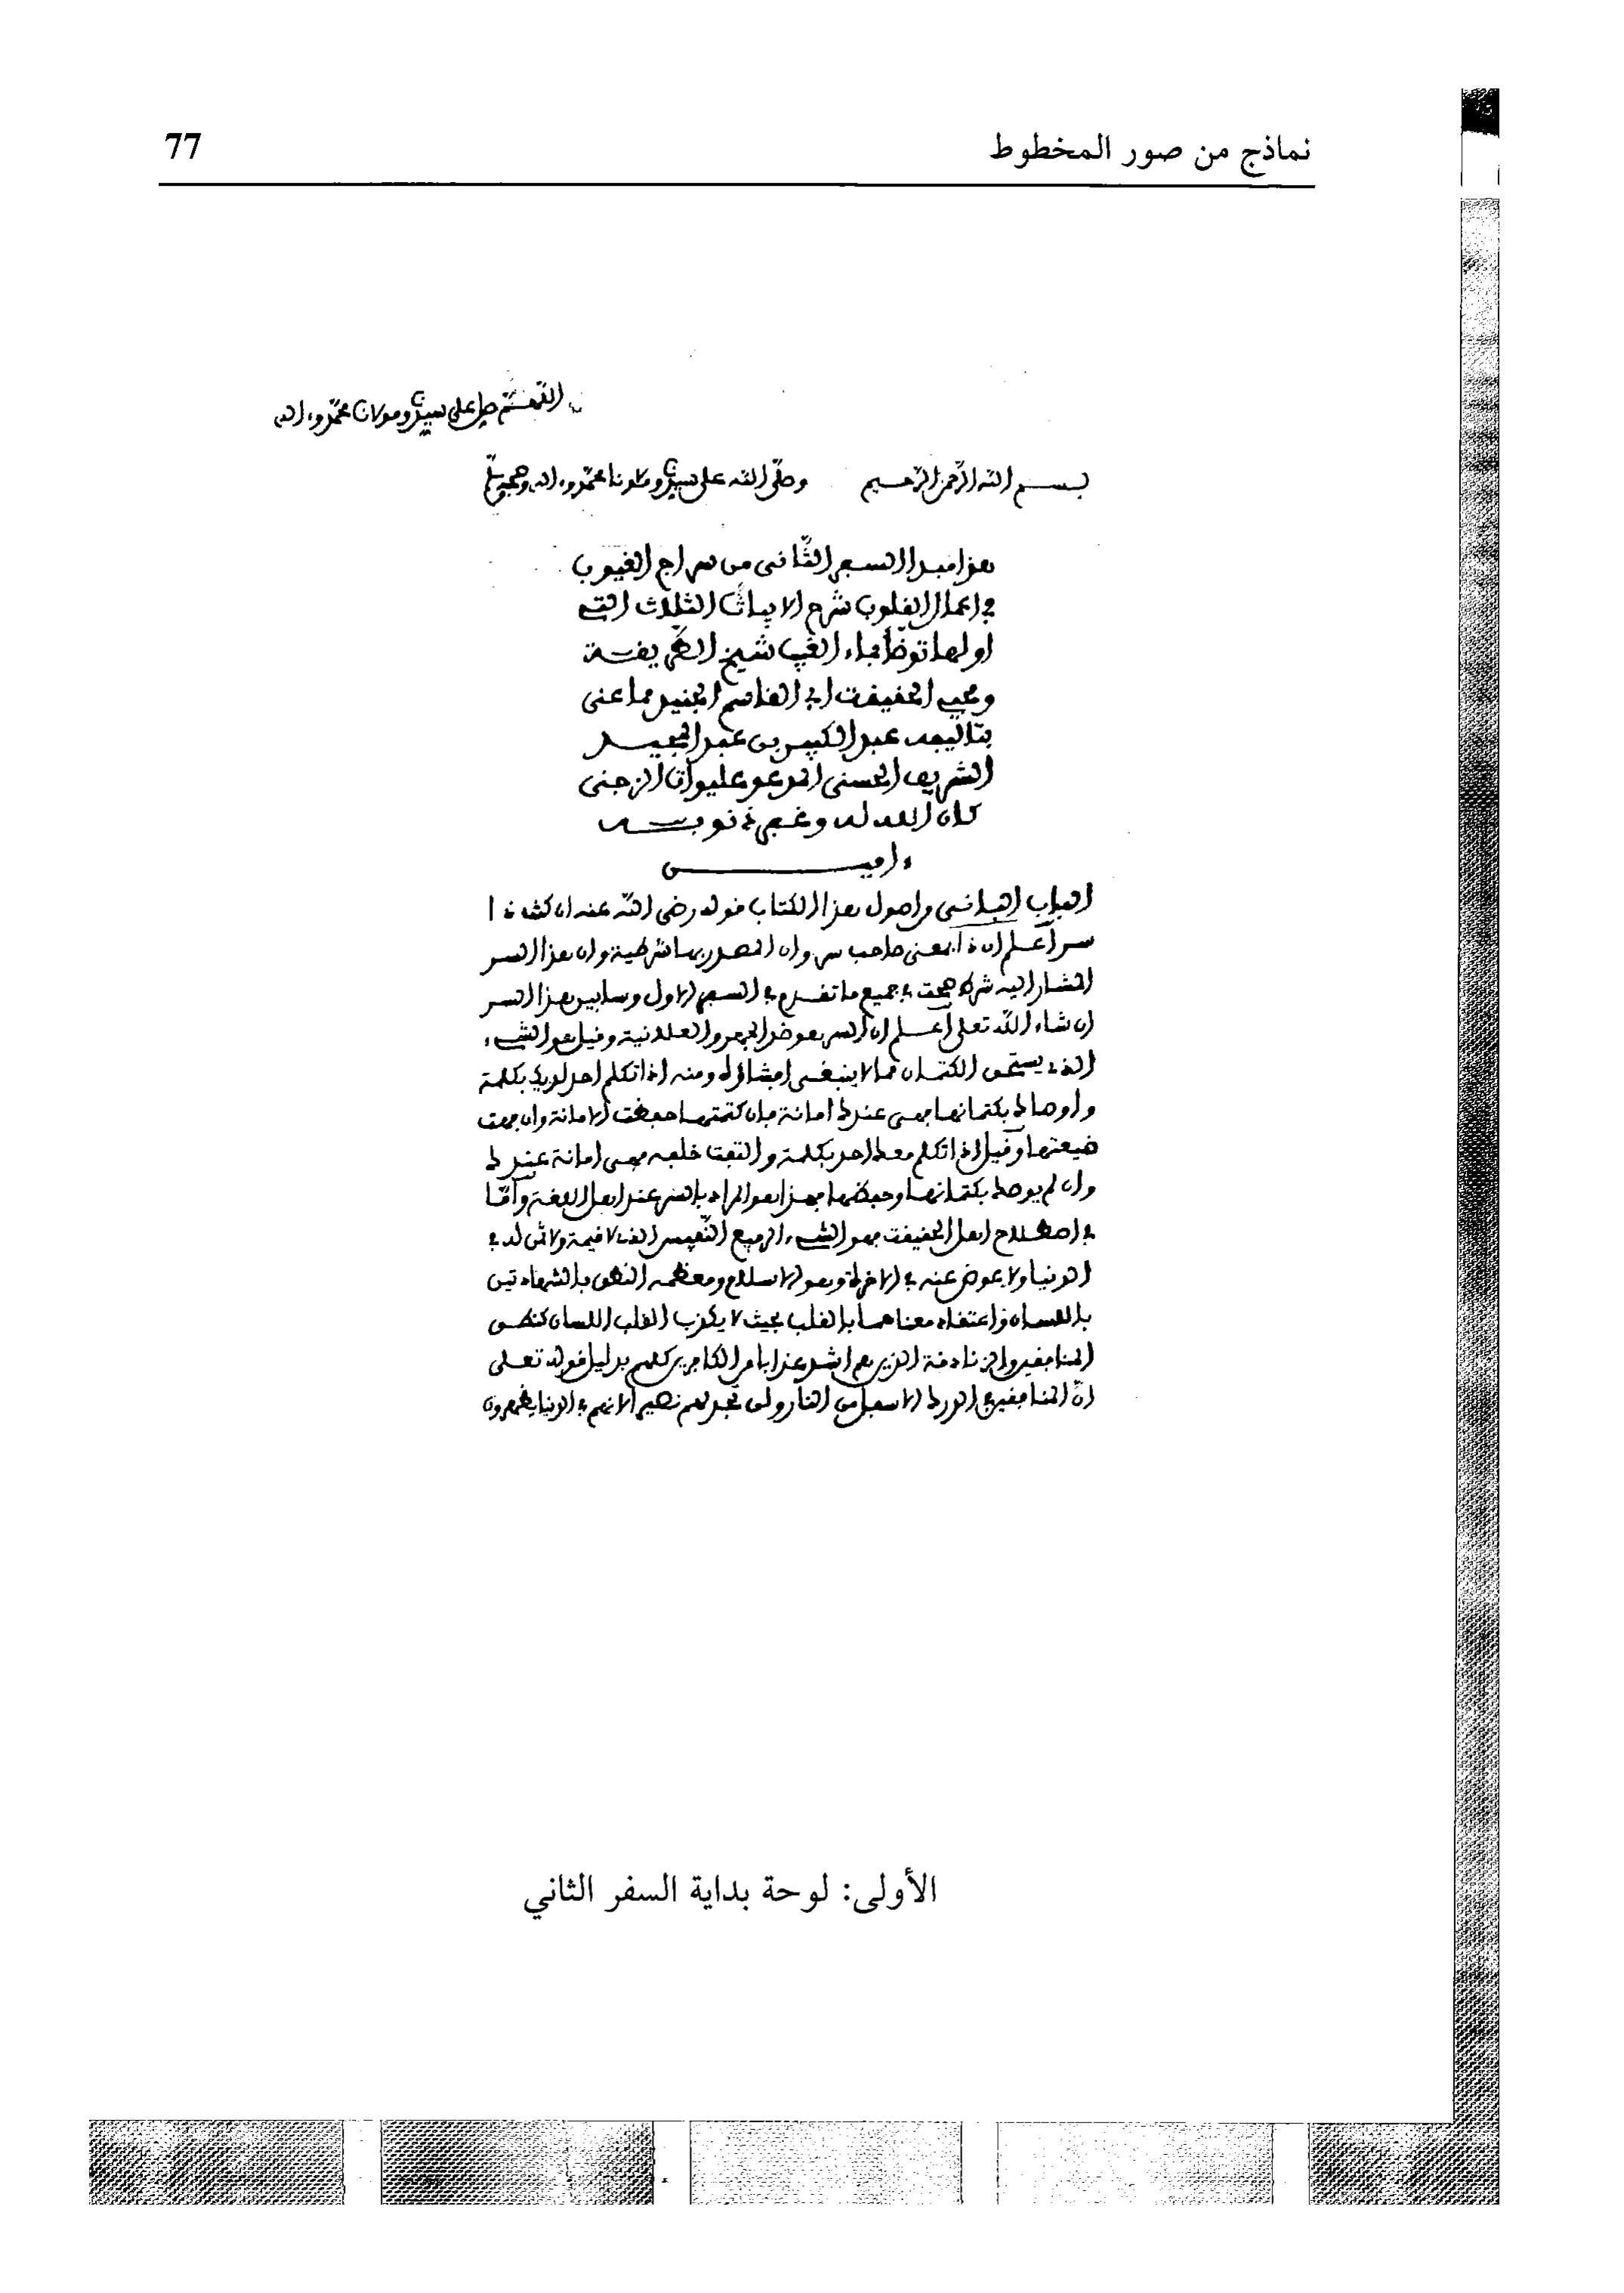 نماذج من صور المخطوط
77
اللهم صل على سيدنا ومولانا محمد وءاله
بسم الله الرحمن الرحيم وصلى الله على سيدنا ومولانا محمد وءاله وصحبه وسلم
هذا مبدأ السفر الثاني من سراج الغيوب
في اعمال القلوب شرح الابيات الثلاث التي
اولها توضأ بماء الغيب شيخ الطريقة
ومحيي الحقيقة ابي القاسم الجنيد مما عنى
بتأليفه عبد الكبير بن عبد المجيد
الشريف الحسني المدعو عليوات الزجني
كان الله له وغفر ذنوبه
ءامين
الباب الثاني من اصول هذا الكتاب قوله رضي الله عنه ان كنت ذا
سر اعلم ان ذا بمعنى صاحب سر وان المصدر بها شرطية وان هذا السر
المشار اليه شرط صحة في جميع ما تقدم في السفر الاول وسأبين هذا السر
ان شاء الله تعلى اعلم ان السر هو ضد الجهر والعلانية وقيل هو الشيء
الذي يستحق الكتمان مما لا ينبغي افشاؤه ومنه اذا تكلم احد لديك بكلمة
واوصاك بكتمانها فهي عندك امانة فان كتمتها حفظت الامانة وان فهت
ضيعتها وقيل اذا تكلم معك احد بكلمة والتفت خلفه فهي امانة عندك
وان لم يوصك بكتمانها وحفظها فهذا هو المراد بالسر عند اهل اللغة وأما
في اصطلاح اهل الحقيقة فهو الشيء الرفيع النفيس الذي لا قيمة ولا ثمن له في
الدنيا ولا عوض عنه في الاخرة وهو الاسلام ومعظمه النطق بالشهادتين
باللسان واعتقاد معناهما بالقلب بحيث لا يكذب القلب اللسان كنطق
المنافقين والزنادقة الذين هم اشد عذابا من الكافرين كلهم بدليل قوله تعلى
ان المنافقين في الدرك الاسفل من النار ولن تجد لهم نصيرا لانهم في الدنيا يظهرون
الأولى: لوحة بداية السفر الثاني